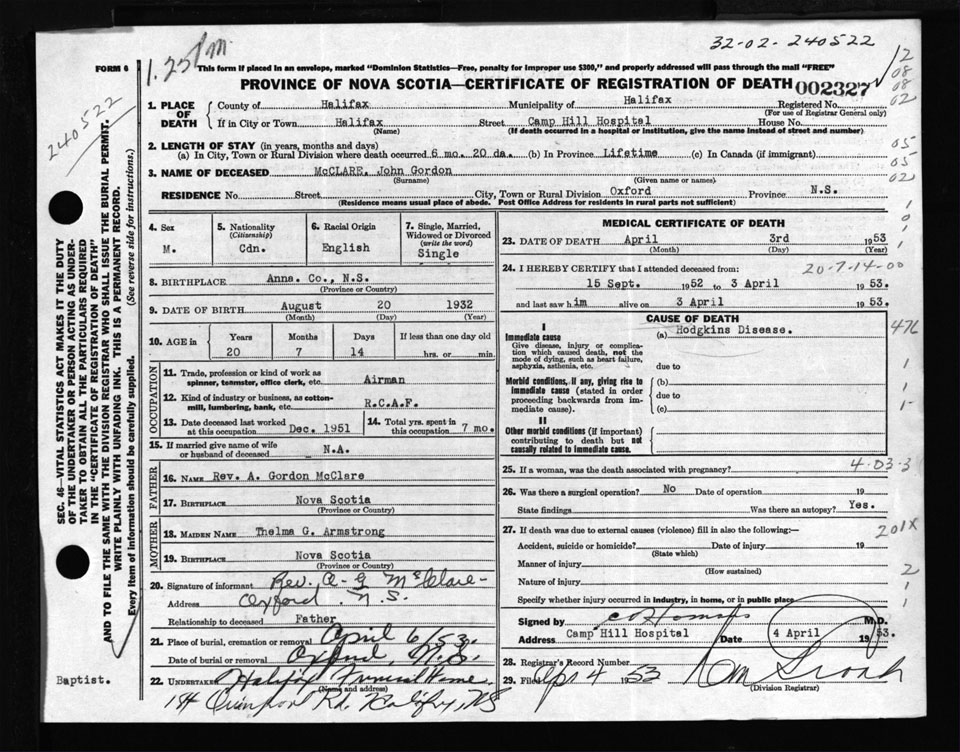 32-02-240522
1.25 PM
FORM 6
This form if placed in an envelope, marked "Dominion Statistics—Free, penalty for improper use $300," and properly addressed will pass through the mail "FREE"
PROVINCE OF NOVA SCOTIA—CERTIFICATE OF REGISTRATION OF DEATH 002327
240522
1. PLACE OF DEATH
County of Halifax Municipality of Halifax Registered No.
(For use of Registrar General only)
If in City or Town Halifax Street Camp Hill Hospital House No.
(Name) (If death occurred in a hospital or institution, give the name instead of street and number)
2. LENGTH OF STAY (in years, months and days)
(a) In City, Town or Rural Division where death occurred 6 mo. 20 da. (b) In Province Lifetime (c) In Canada (if immigrant)
3. NAME OF DECEASED McCLARE, John Gordon
(Surname) (Given name or names)
RESIDENCE No. Street City, Town or Rural Division Oxford Province N.S.
(Residence means usual place of abode. Post Office Address for residents in rural parts not sufficient)
4. Sex
M.
5. Nationality
(Citizenship)
Cdn.
6. Racial Origin
English
7. Single, Married,
Widowed or Divorced
(write the word)
Single
8. BIRTHPLACE Anna. Co., N.S.
(Province or Country)
9. DATE OF BIRTH August 20 1932
(Month) (Day) (Year)
10. AGE in
Years Months Days If less than one day old
20 7 14 hrs. or min.
OCCUPATION
11. Trade, profession or kind of work as
spinner, teamster, office clerk, etc. Airman
12. Kind of industry or business, as cotton-
mill, lumbering, bank, etc. R.C.A.F.
13. Date deceased last worked
at this occupation Dec. 1951
14. Total yrs. spent in
this occupation 7 mo.
15. If married give name of wife
or husband of deceased N.A.
FATHER
16. NAME Rev. A. Gordon McClare
17. BIRTHPLACE Nova Scotia
(Province or Country)
MOTHER
18. MAIDEN NAME Thelma G. Armstrong
19. BIRTHPLACE Nova Scotia
(Province or Country)
20. Signature of informant Rev. A-G McClare-
Address Oxford. N.S.
Relationship to deceased Father
21. Place of burial, cremation or removal April 6/53.
Date of burial or removal Oxford, N.S.
22. UNDERTAKER Halifax Funeral Home
(Name and address)
Rd. Halifax, NS
MEDICAL CERTIFICATE OF DEATH
23. DATE OF DEATH April 3rd 1953
(Month) (Day) (Year)
24. I HEREBY CERTIFY that I attended deceased from:
20-7-14-00
15 Sept. 1952 to 3 April 1953.
and last saw him alive on 3 April 1953.
CAUSE OF DEATH
I
Immediate cause
Give disease, injury or complica-
tion which caused death, not the
mode of dying, such as heart failure,
asphyxia, asthenia, etc.
(a) Hodgkins Disease.
due to
Morbid conditions, if any, giving rise to
immediate cause (stated in order
proceeding backwards from im-
mediate cause).
(b)
due to
(c)
II
Other morbid conditions (if important)
contributing to death but not
causally related to immediate cause.
25. If a woman, was the death associated with pregnancy?
4-03-3
26. Was there a surgical operation? No Date of operation 19
State findings Was there an autopsy? Yes.
27. If death was due to external causes (violence) fill in also the following:—
201X
Accident, suicide or homicide? Date of injury 19
(State which)
Manner of injury
(How sustained)
Nature of injury
Specify whether injury occurred in industry, in home, or in public place
Signed by M.D.
Address Camp Hill Hospital Date 4 April 1953.
28. Registrar's Record Number
29. Filed Apr 4 1953
(Division Registrar)
12
08
08
02
05
05
02
476
2
SEC. 46—VITAL STATISTICS ACT MAKES IT THE DUTY
OF THE UNDERTAKER OR PERSON ACTING AS UNDER-
TAKER TO OBTAIN ALL THE PARTICULARS REQUIRED
IN THE "CERTIFICATE OF REGISTRATION OF DEATH"
AND TO FILE THE SAME WITH THE DIVISION REGISTRAR WHO SHALL ISSUE THE BURIAL PERMIT.
WRITE PLAINLY WITH UNFADING INK. THIS IS A PERMANENT RECORD.
Every item of information should be carefully supplied. (See reverse side for instructions.)
Baptist.